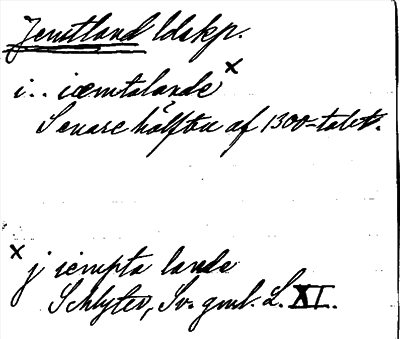 Jemtland ldskp.
i.. iæmtalande x
Senare hälften af 1300-talet.
x j iempta lande
Schlyter, Sv. gml. L. XI.